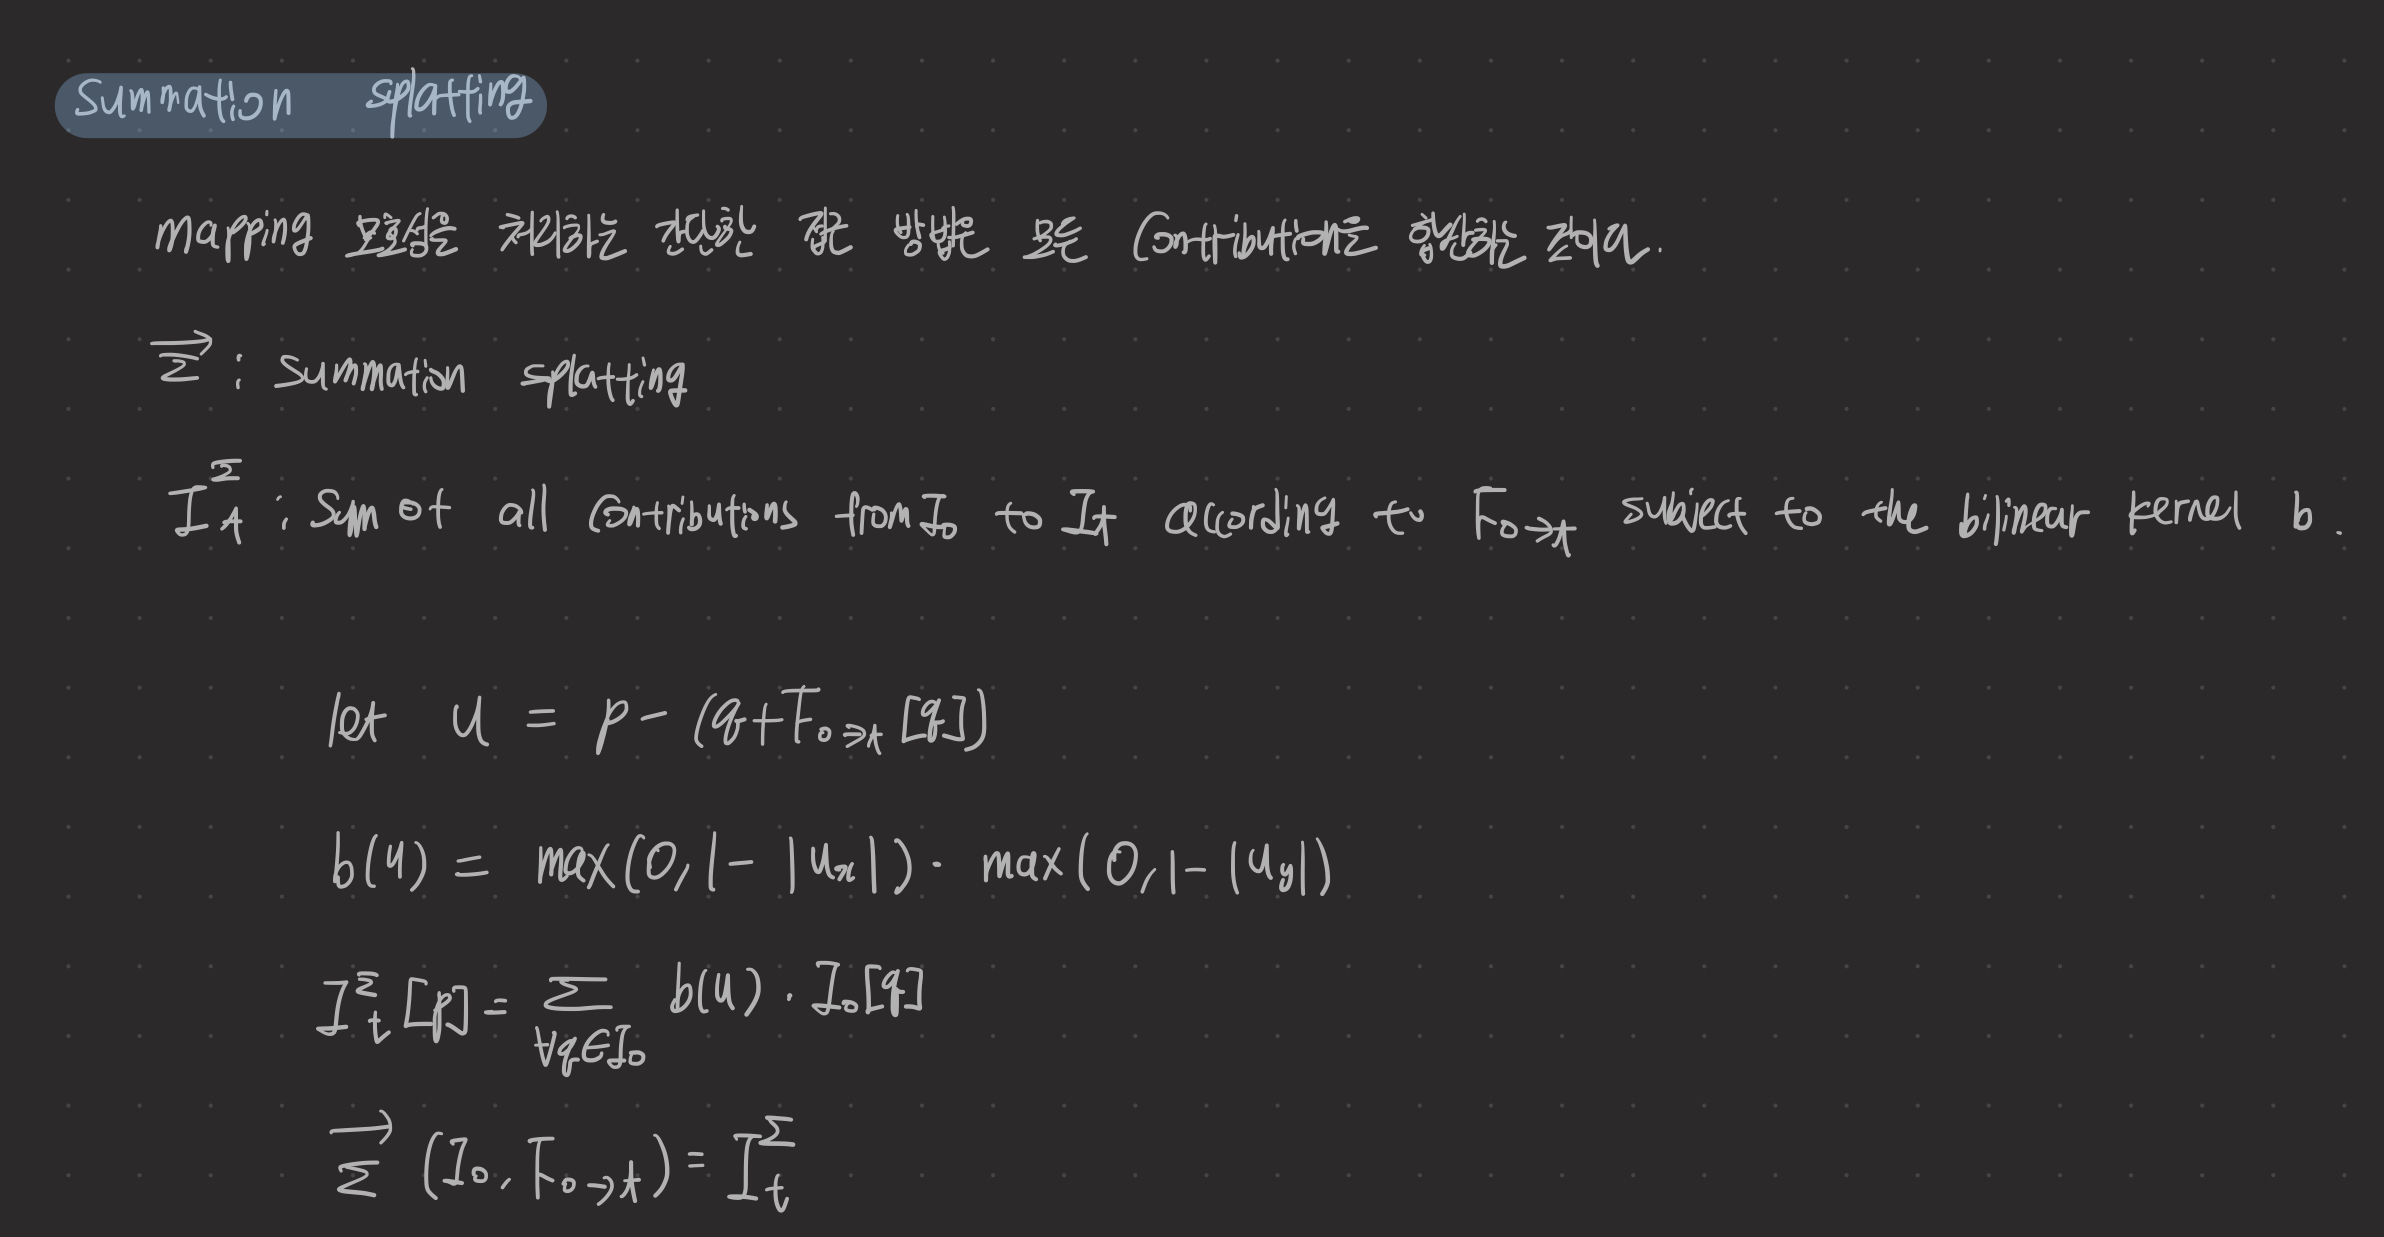 Summation splatting
mapping 모호성을 처리하는 간단한 접근 방법은 모든 Contribution을 합산하는 것이다.
$\overrightarrow{\Sigma}$ : Summation splatting
$I_t^{\Sigma}$ : Sum of all Contributions from $I_0$ to $I_t$ according to $F_{0 \to t}$ subject to the bilinear kernel b.
let $u = p - (q + F_{0 \to t}[q])$
$b(u) = \max(0, 1 - |u_x|) \cdot \max(0, 1 - |u_y|)$
$I_t^{\Sigma}[p] = \sum_{\forall q \in I_0} b(u) \cdot I_0[q]$
$\overrightarrow{\Sigma}(I_0, F_{0 \to t}) = I_t^{\Sigma}$